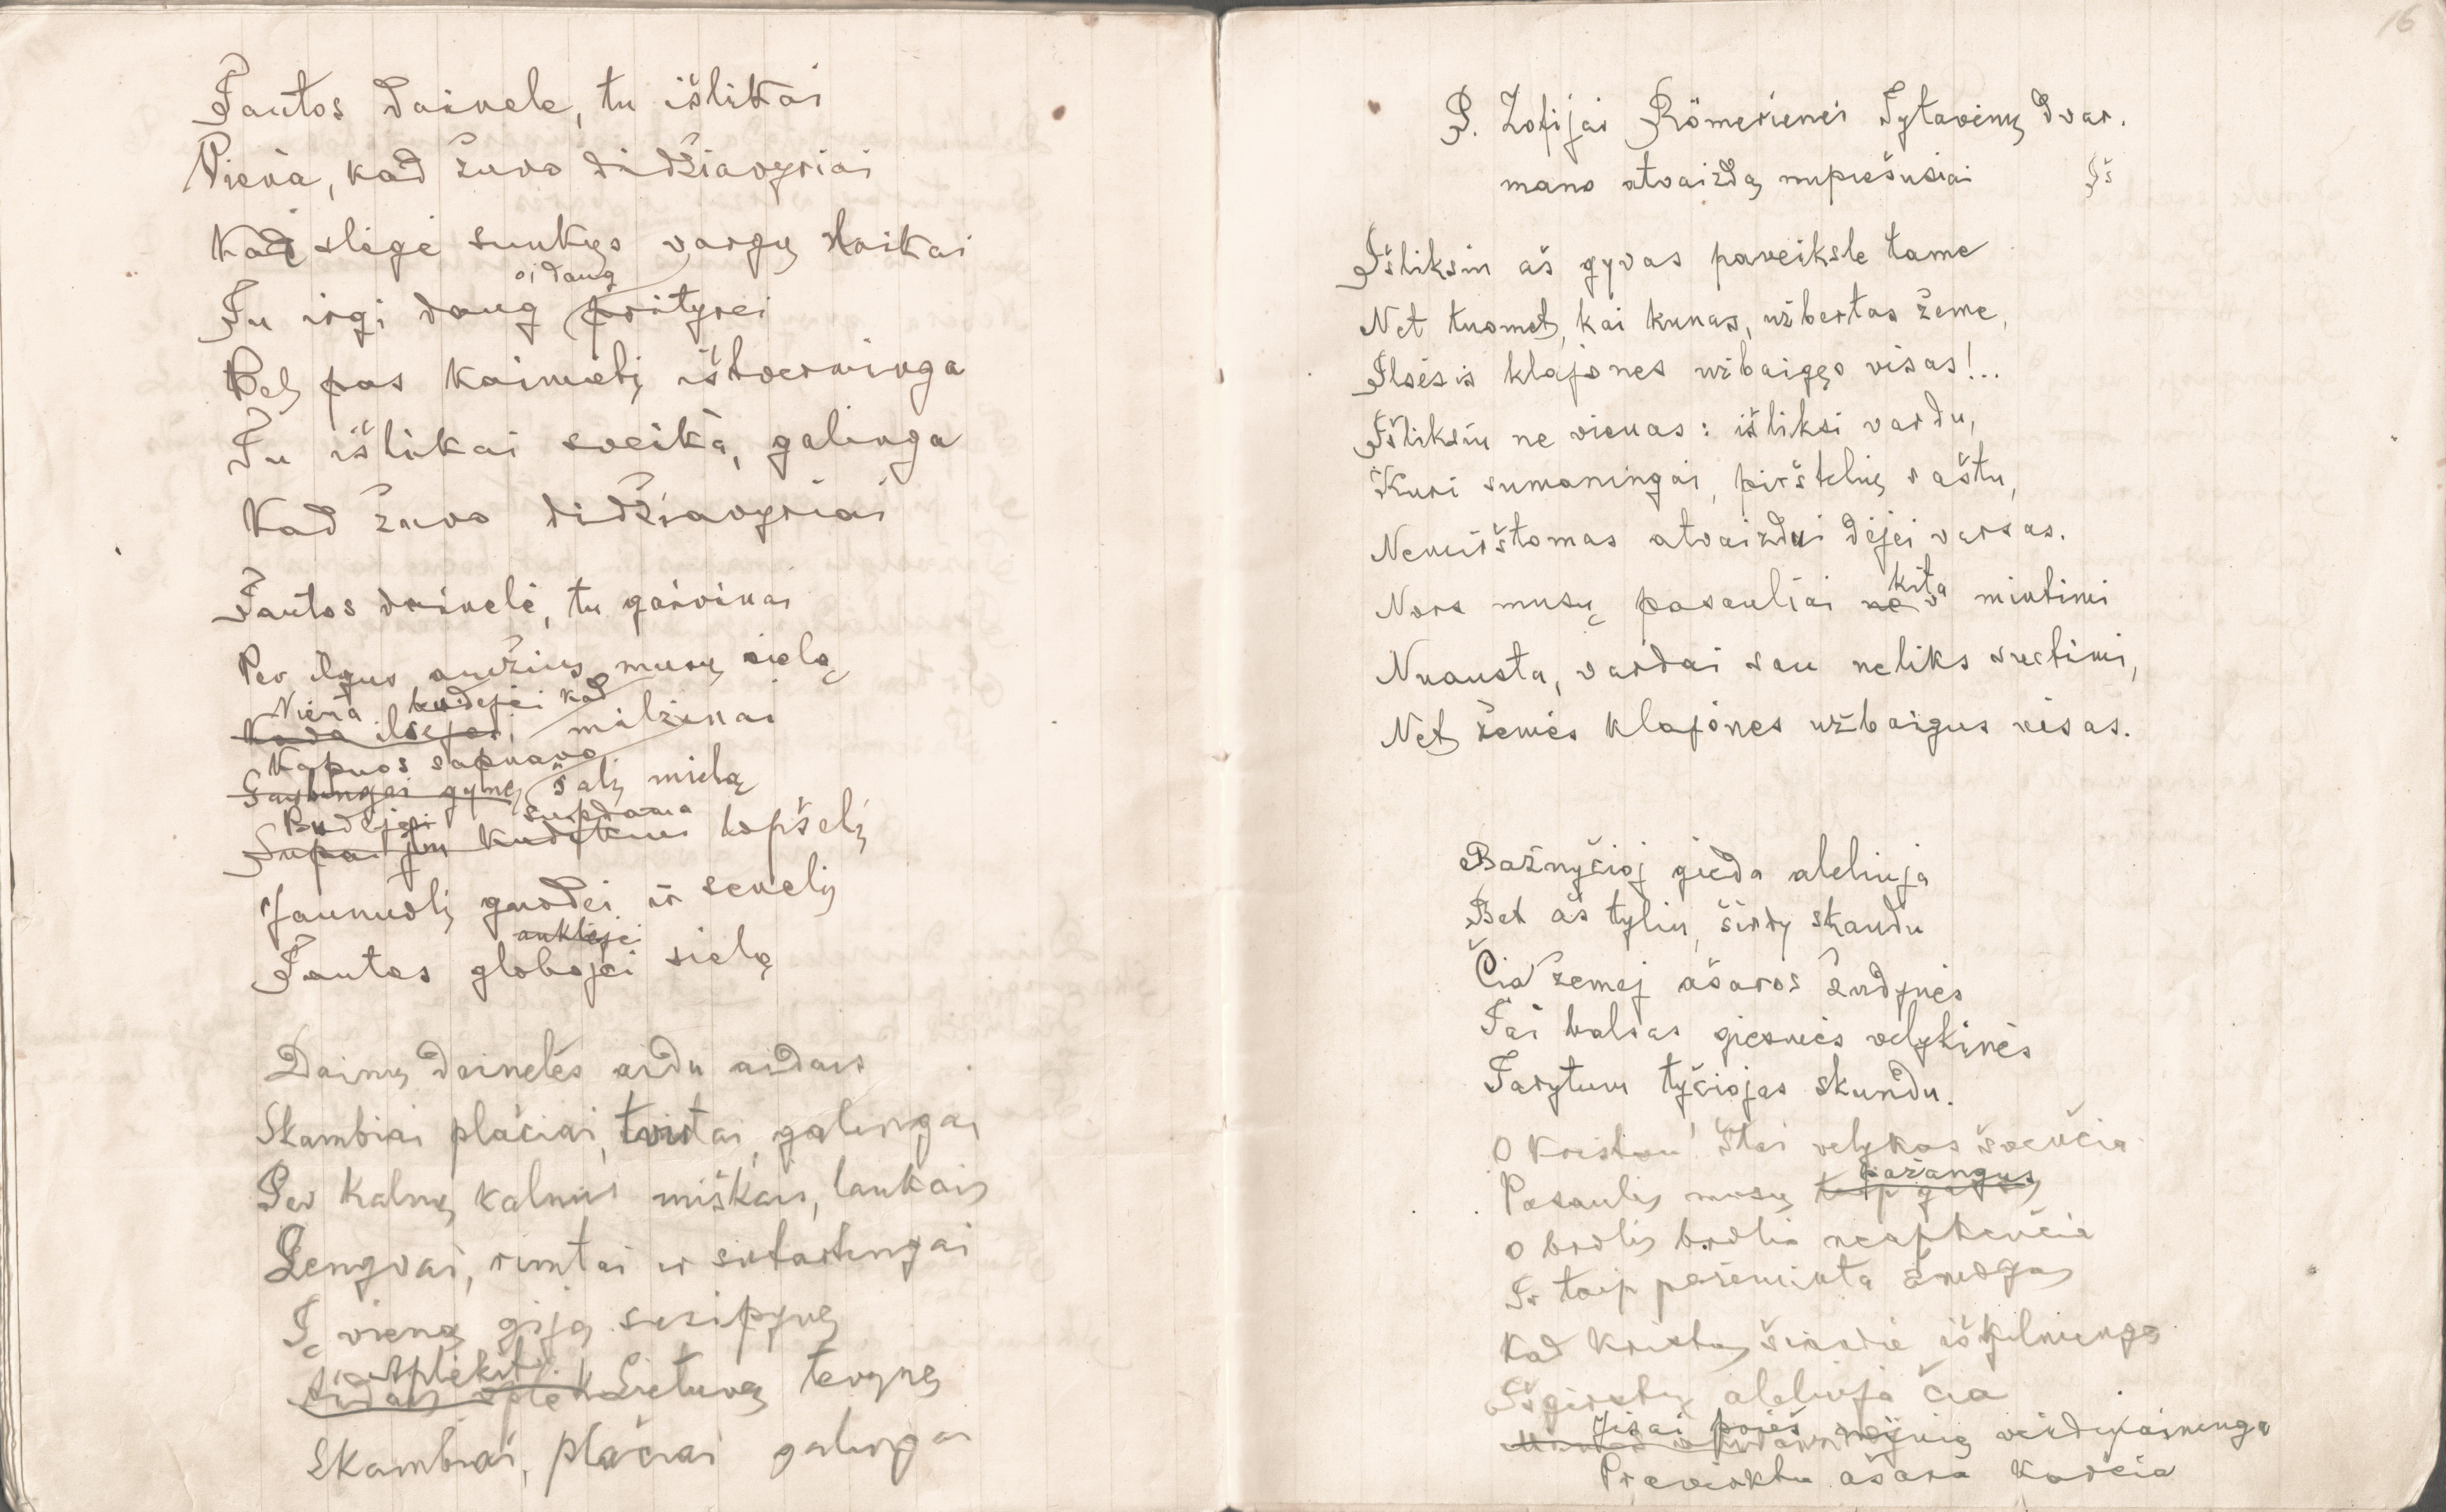 Tautos dainele, tu išlikai
Viena, kad žuvo didžiavyriai
Kad slėgė sunkųs vargų laikai
oi daug
Tu irgi daug prityrei
Bet pas kaimetį ištverminga
Tu išlikai sveika, galinga
Kad žuvo didžiavyriai
Tautos dainelė, tu gaivinai
Per ilgus amžius musų sielą
Viena budėjei kad
Kada ilsėjos milžinai
Kapuos sapnavo
Garbingai gynę šalį mielą
Budėjei supdama
Supai tu kudikiui lopšelį
Jaunuolį guodei ir senelį
auklėjei
Tautos globojei sielą
Dainų dainelės aidu aidais
Skambiai plačiai, tvirtai, galingai
Per kalnų kalnus miškais, laukais
Lengvai, rimtai ir sutartingai
Į vieną giją susipynę
Aplėkit
Aidais aplėk Lietuvą tevynę
Skambiai, plačiai galingai
16
P. Zofijai Römerienei Tytavėnų dvar.
mano atvaizdą nupiešusiai Iš
Išliksiu aš gyvas paveiksle tame
Net tuomet, kai kunas, užbertas žeme,
Ilsėsis klajones užbaigęs visas!..
Išliksiu ne vienas: išliksi vardu,
Kuri sumaningai, pirštelių raštu,
Nemirštamas atvaizdui dėjei varsas.
kita
Nors musų pasauliai ne mintimi
Nuausta, vardai sau neliks svetimi,
Net žemės klajones užbaigus visas.
Bažnyčioj gieda aleliuja
Bet aš tyliu, širdy skaudu
Čia žemėj ašaros žudynės
Tai balsas giesmės velykinės
Tarytum tyčiojas skundu.
O Kristau! Štai velykas švenčia
pažangus
Pasaulis musų taip
O brolis brolio neapkenčia
Ir taip pažeminta žmogus
Kad Kristus širdie iškilminga
Išgirstų aleliuja čia
Jisai vaidų
Pravirktu ašara karčia